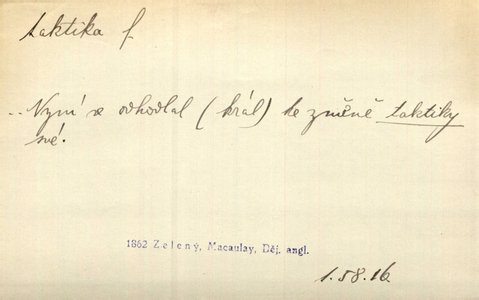 taktika f
.. Nyní se odhodlal (král) ke změně taktiky
své.
1862 Zelený, Macaulay, Děj. angl.
1.58.16